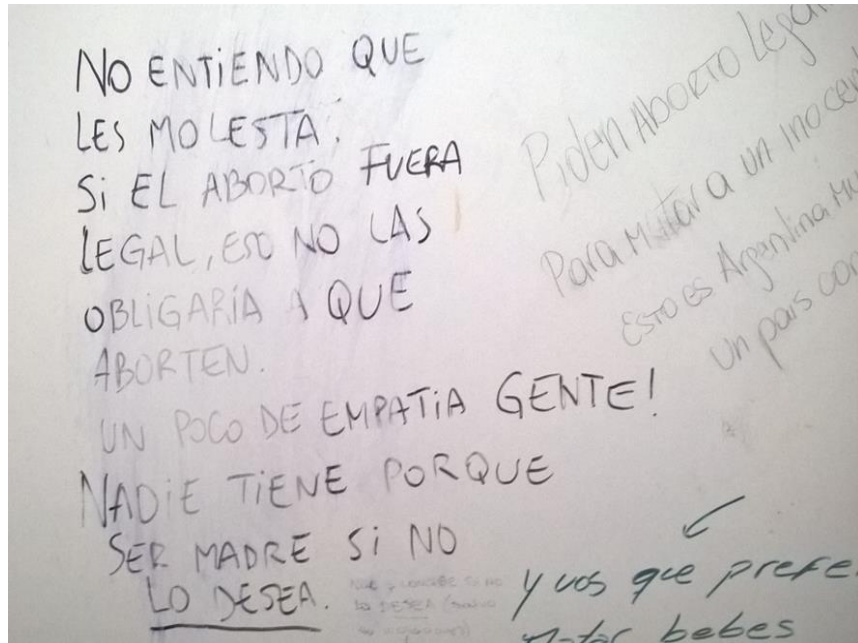 NO ENTIENDO QUE
LES MOLESTA.
Si EL ABORTO FUERA
LEGAL, ESO NO LAS
OBLIGARÍA A QUE
ABORTEN.
UN POCO DE EMPATÍA GENTE!
NADIE TIENE PORQUE
SER MADRE Si NO
LO DESEA.
Piden ABORTO Legal
Para Matar a un
Esto es Argentina
Un pais
LO DESEA
y vos que
bebes